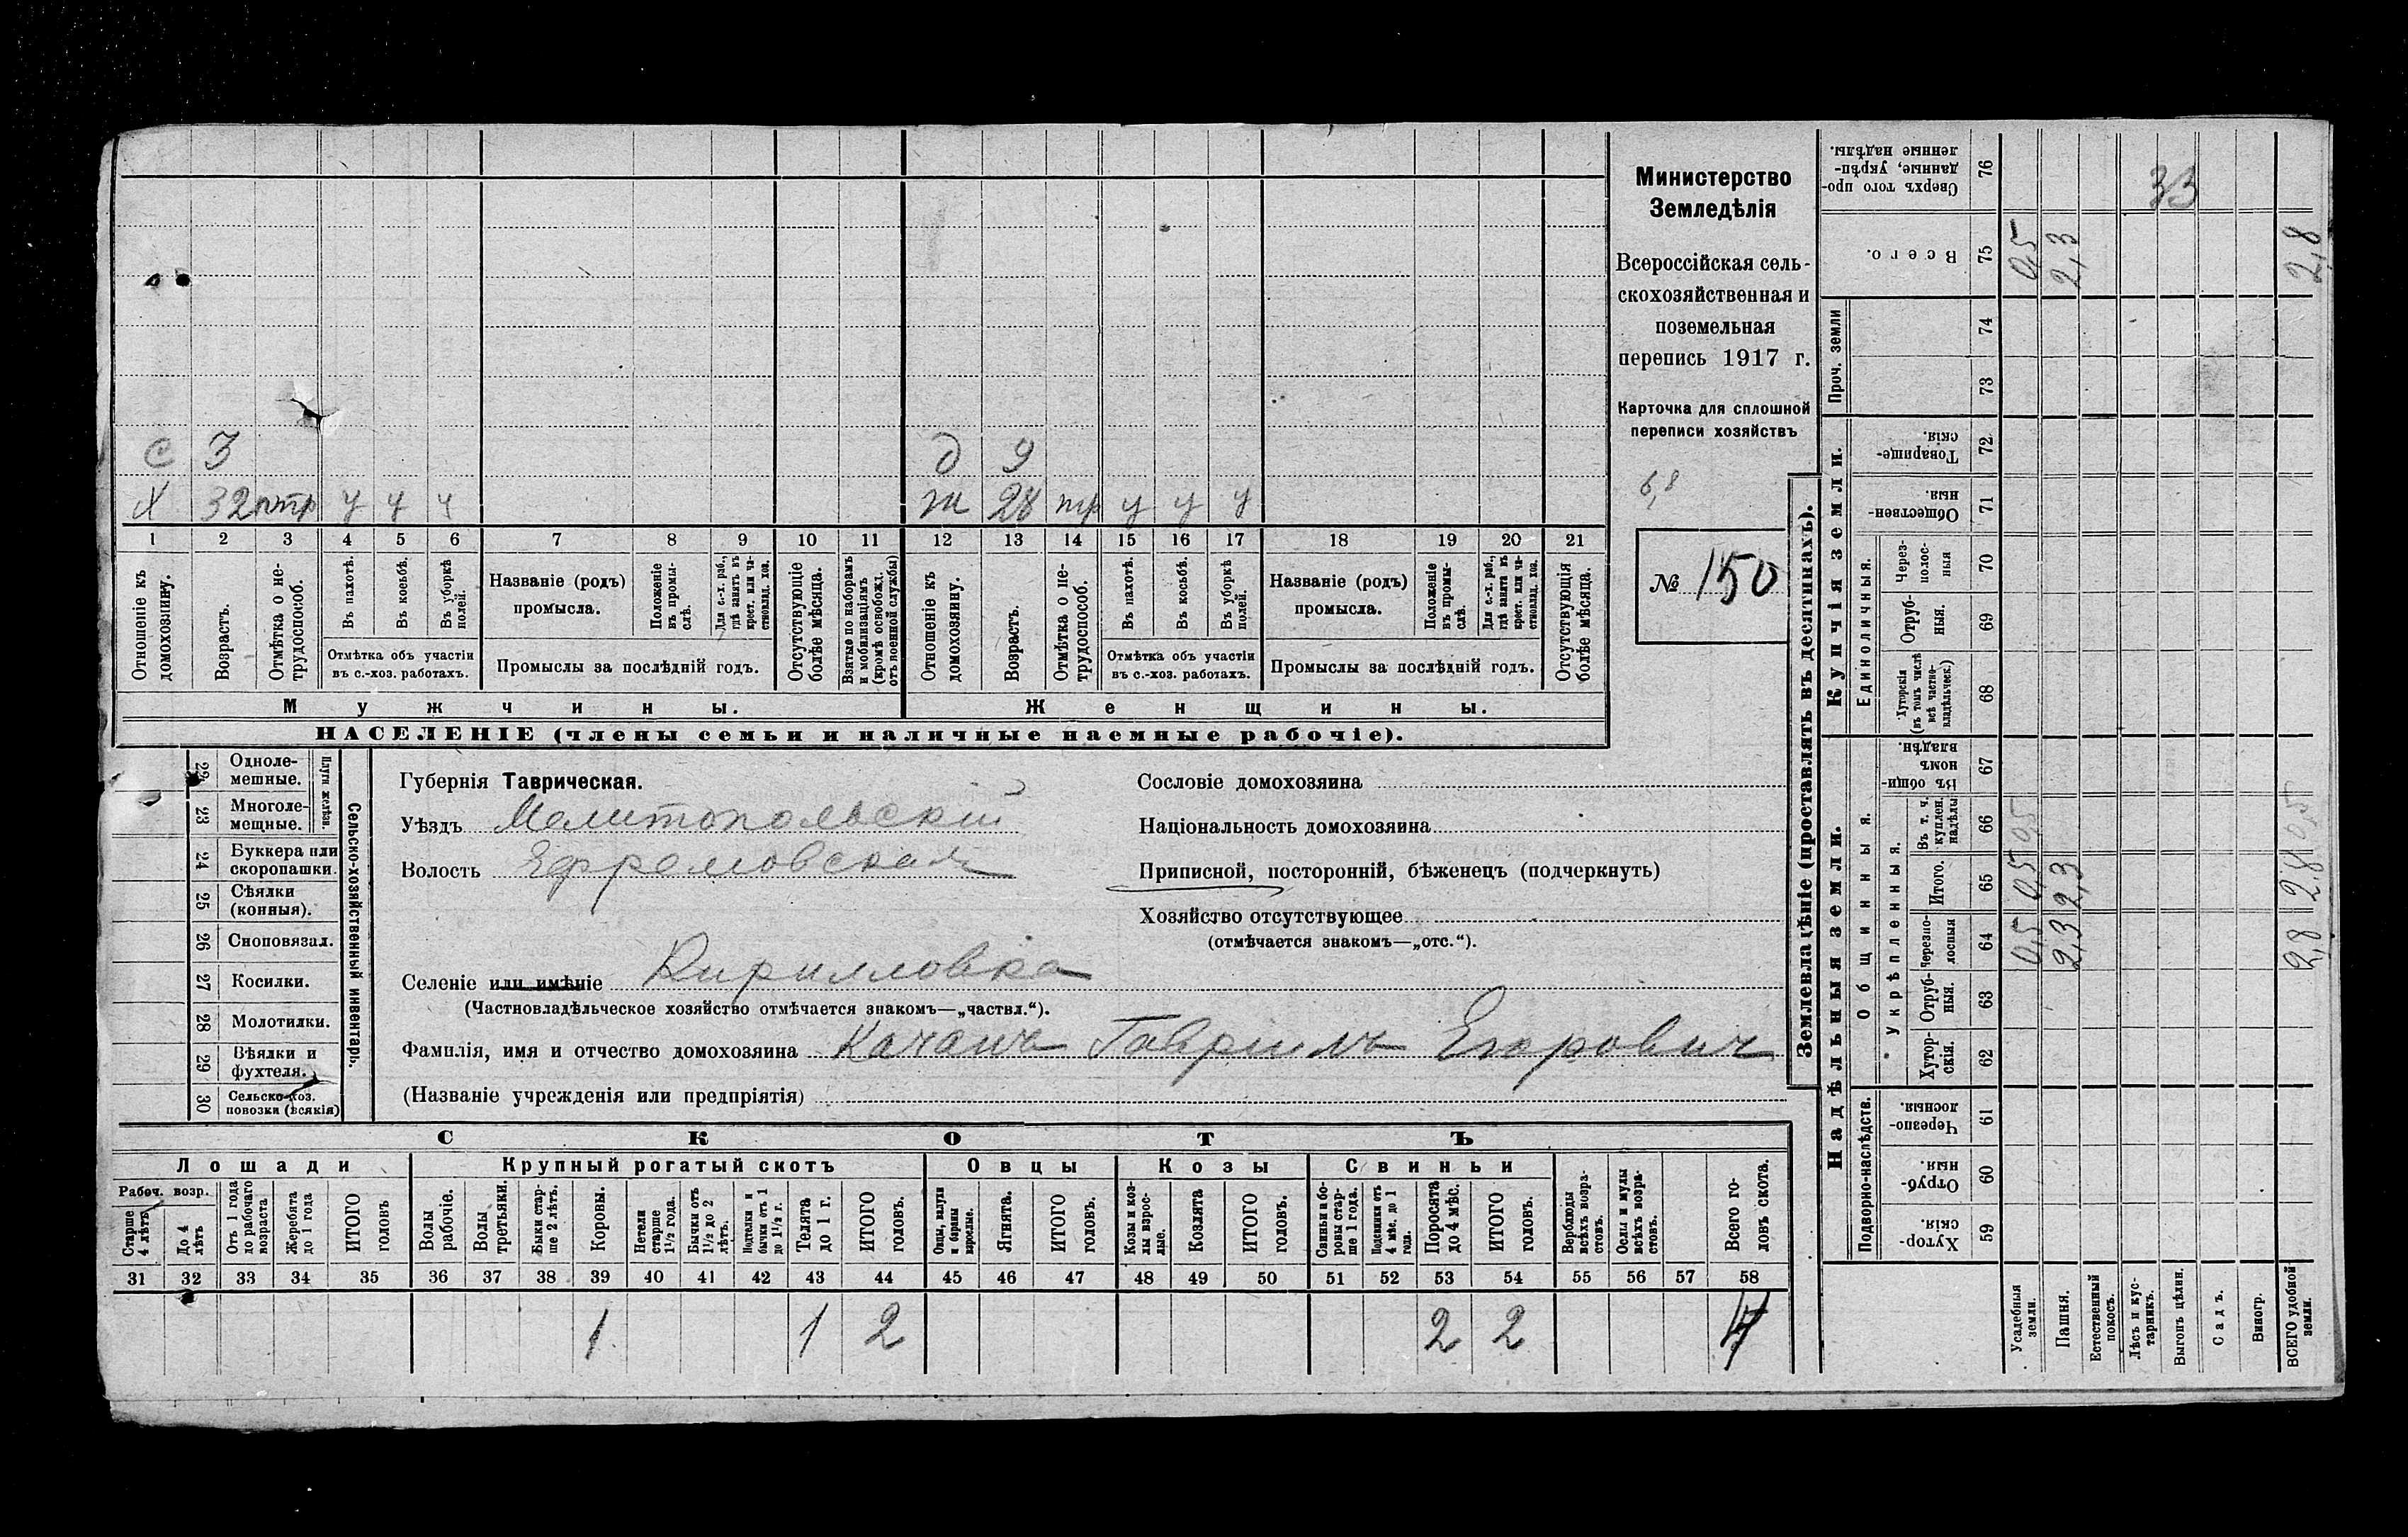 с 3 д 9
х 32 птр у у у ж 28 тр у у у
1 2 3 4 5 6 7 8 9 10 11 12 13 14 15 16 17 18 19 20 21
Отношеніе къ домохозяину.
Возрастъ.
Отмѣтка о нетрудоспособ.
Въ пахотѣ.
Въ косьбѣ.
Въ уборкѣ полей.
Отмѣтка объ участіи
въ с.-хоз. работахъ.
Названіе (родъ)
промысла.
Положеніе въ промыслѣ.
Для с.-х. раб., гдѣ занятъ въ крест. или частновлад. хоз.
Промыслы за послѣдній годъ.
Отсутствующіе болѣе мѣсяца.
Взятые по наборамъ и мобилизаціямъ (кромѣ освобожд. отъ военной службы)
Отношеніе къ домохозяину.
Возрастъ.
Отмѣтка о нетрудоспособ.
Въ пахотѣ.
Въ косьбѣ.
Въ уборкѣ полей.
Отмѣтка объ участіи
въ с.-хоз. работахъ.
Названіе (родъ)
промысла.
Положеніе въ промыслѣ.
Для с.-х. раб., гдѣ занята въ крест. или частновлад. хоз.
Промыслы за послѣдній годъ.
Отсутствующія болѣе мѣсяца.
Мужчины. Женщины.
НАСЕЛЕНІЕ (члены семьи и наличные наемные рабочіе).
Министерство
Земледѣлія
Всероссійская сель-
скохозяйственная и
поземельная
перепись 1917 г.
Карточка для сплошной
переписи хозяйствъ
6,8
№ 150
Сельско-хозяйственный инвентарь.
Плуги желѣзн.
22 Одноле-
мешные.
23 Многоле-
мещные.
24 Буккера или
скоропашки.
25 Сѣялки
(конныя).
26 Сноповязал.
27 Косилки.
28 Молотилки.
29 Вѣялки и
фухтеля.
30 Сельско-хоз.
повозки (всякія)
Губернія Таврическая.
Уѣздъ Мелитопольскій
Волость Ефремовская
Селеніе или имѣніе Кирилловка
(Частновладѣльческое хозяйство отмѣчается знакомъ—„частвл.“).
Фамилія, имя и отчество домохозяина Качанъ Гавріилъ Егорович
(Названіе учрежденія или предпріятія)
Сословіе домохозяина
Національность домохозяина
Приписной, посторонній, бѣженецъ (подчеркнуть)
Хозяйство отсутствующее
(отмѣчается знакомъ—„отс.“).
СКОТЪ
Лошади Крупный рогатый скотъ Овцы Козы Свиньи
Рабоч. возр.
Старше 4 лѣтъ
До 4 лѣтъ
Отъ 1 года до рабочаго возраста
Жеребята до 1 года
ИТОГО головъ
Волы рабочіе.
Волы третьяки.
Быки старше 2 лѣтъ.
Коровы.
Нетели старше 1½ года.
Бычки отъ 1½ до 2 лѣтъ.
Подтелки и бычки отъ 1 до 1½ г.
Телята до 1 г.
ИТОГО головъ.
Овцы, валухи и бараны взрослые.
Ягнята.
ИТОГО головъ.
Козы и козлы взрослые.
Козлята
ИТОГО головъ.
Свиньи и боровы старше 1 года.
Подсвинки отъ 4 мѣс. до 1 года.
Поросята до 4 мѣс.
ИТОГО головъ.
Верблюды всѣхъ возрастовъ.
Ослы и мулы всѣхъ возрастовъ.
Всего головъ скота.
31 32 33 34 35 36 37 38 39 40 41 42 43 44 45 46 47 48 49 50 51 52 53 54 55 56 57 58
1 1 2 2 2 4
Землевладѣніе (проставлять въ десятинахъ).
Надѣльныя земли. Купчія земли.
Подворно-наслѣдств.
Общинныя.
Укрѣпленныя.
Единоличныя.
Проч. земли
Хуторскія. 59
Отрубныя. 60
Черезполосныя. 61
Хуторскія. 62
Отрубныя. 63
Черезполосныя 64
Итого. 65
Въ т. ч. куплен. надѣлы 66
Въ общинномъ владѣн. 67
Хуторскія (въ томъ числѣ всѣ частновладѣльческ.) 68
Отрубныя. 69
Черезполосныя 70
Общественныя. 71
Товарищескія. 72
73
74
Всего. 75
Сверхъ того проданные, укрѣпленные надѣлы. 76
Усадебныя земли. 0,5 0,5 0,5 0,5
Пашня. 2,3 2,3 2,3
Естественный покосъ.
Лѣсъ и кустарникъ.
Выгонъ цѣлин.
Садъ.
Виногр.
ВСЕГО удобной земли. 2,8 2,8 0,5 2,8
33